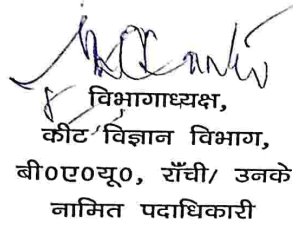 विभागाध्यक्ष,
कीट विज्ञान विभाग,
बी०ए०यू०, राँची/ उनके
नामित पदाधिकारी